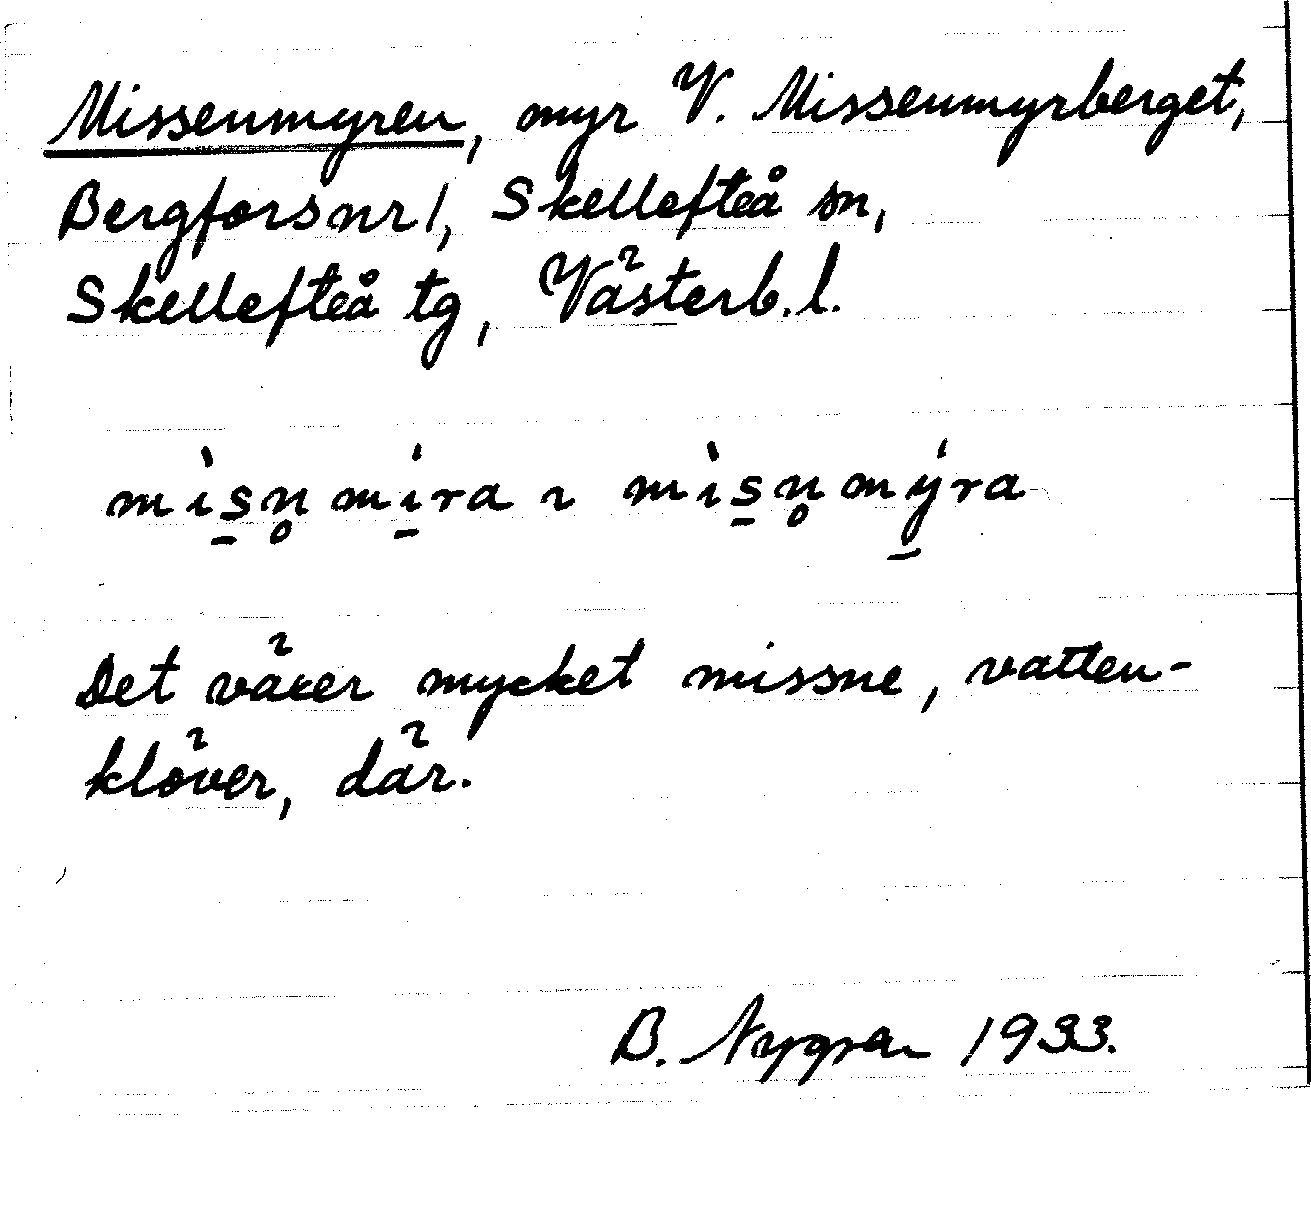 Missenmyren, myr V. Missenmyrberget,
Bergfors nr 1, Skellefteå sn,
Skellefteå tg, Västerb. l.
mìs̱n̥mí̱ra ~ mìs̱n̥mý̱ra
Det växer mycket missne, vatten-
klöver, där.
B. Nygren 1933.